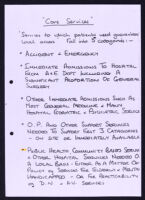 "Core Services"
Services to which patients need guaranteed
local access fall into 5 categories:-
• Accident + Emergency
• Immediate Admissions to Hospital
from A+E Dept including a
significant proportion of General
Surgery
• Other Immediate Admissions such as
most General Medicine + many
Hospital Geriatric + Psychiatric Services
• O.P. and other Support Services
needed to support 1st 3 categories
- on site or immediately available
• Public Health Community Based Services
+ other Hospital Services needed on
a local basis either as a matter of
policy eg services for Elderly + Mentally
Handicapped - or for practicability
eg D.N. + H.V. Services